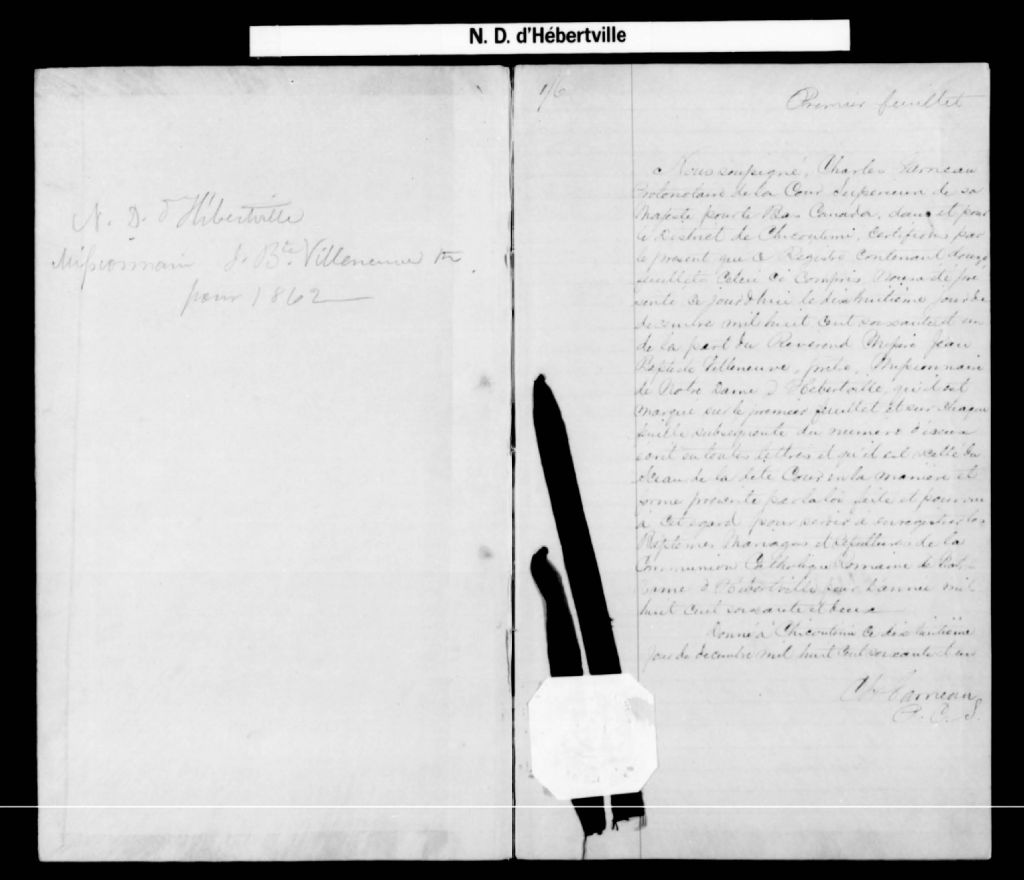 N. D. d'Hébertville
N. D. d'Hébertville
Missionnaire J. Bte. Villeneuve Ptre
pour 1862
Premier feuillet
Nous soussigné, Charles Garneau
Protonotaire de la Cour Superieure de sa
Majesté pour le Bas Canada, dans et pour
le District de Chicoutimi, Certifions par
le present que ce Registre contenant douze
feuillets Celui ci Compris, nous a été pré
senté ce jourd'hui le dix huitième jour de
decembre mil huit cent soixante et un
de la part du Reverend Messire Jean
Baptiste Villeneuve, prêtre, Missionnaire
de Notre Dame d'Hébertville, qu'il est
marqué sur le premier feuillet et sur chaque
feuille subsequente du numero d'iceux
écrit en toutes lettres et qu'il est scellé du
Sceau de la dite Cour en la manière et
forme prescrite par la loi faite et pourvue
à cet égard pour servir à enregistrer les
Baptemes Mariages et Sépultures de la
Communion Catholique Romaine de Notre
Dame d'Hébertville pour l'année mil
huit cent soixante et deux
Donné à Chicoutimi ce dix huitième
jour de decembre mil huit cent soixante et un
Chs Garneau
P. C. S.